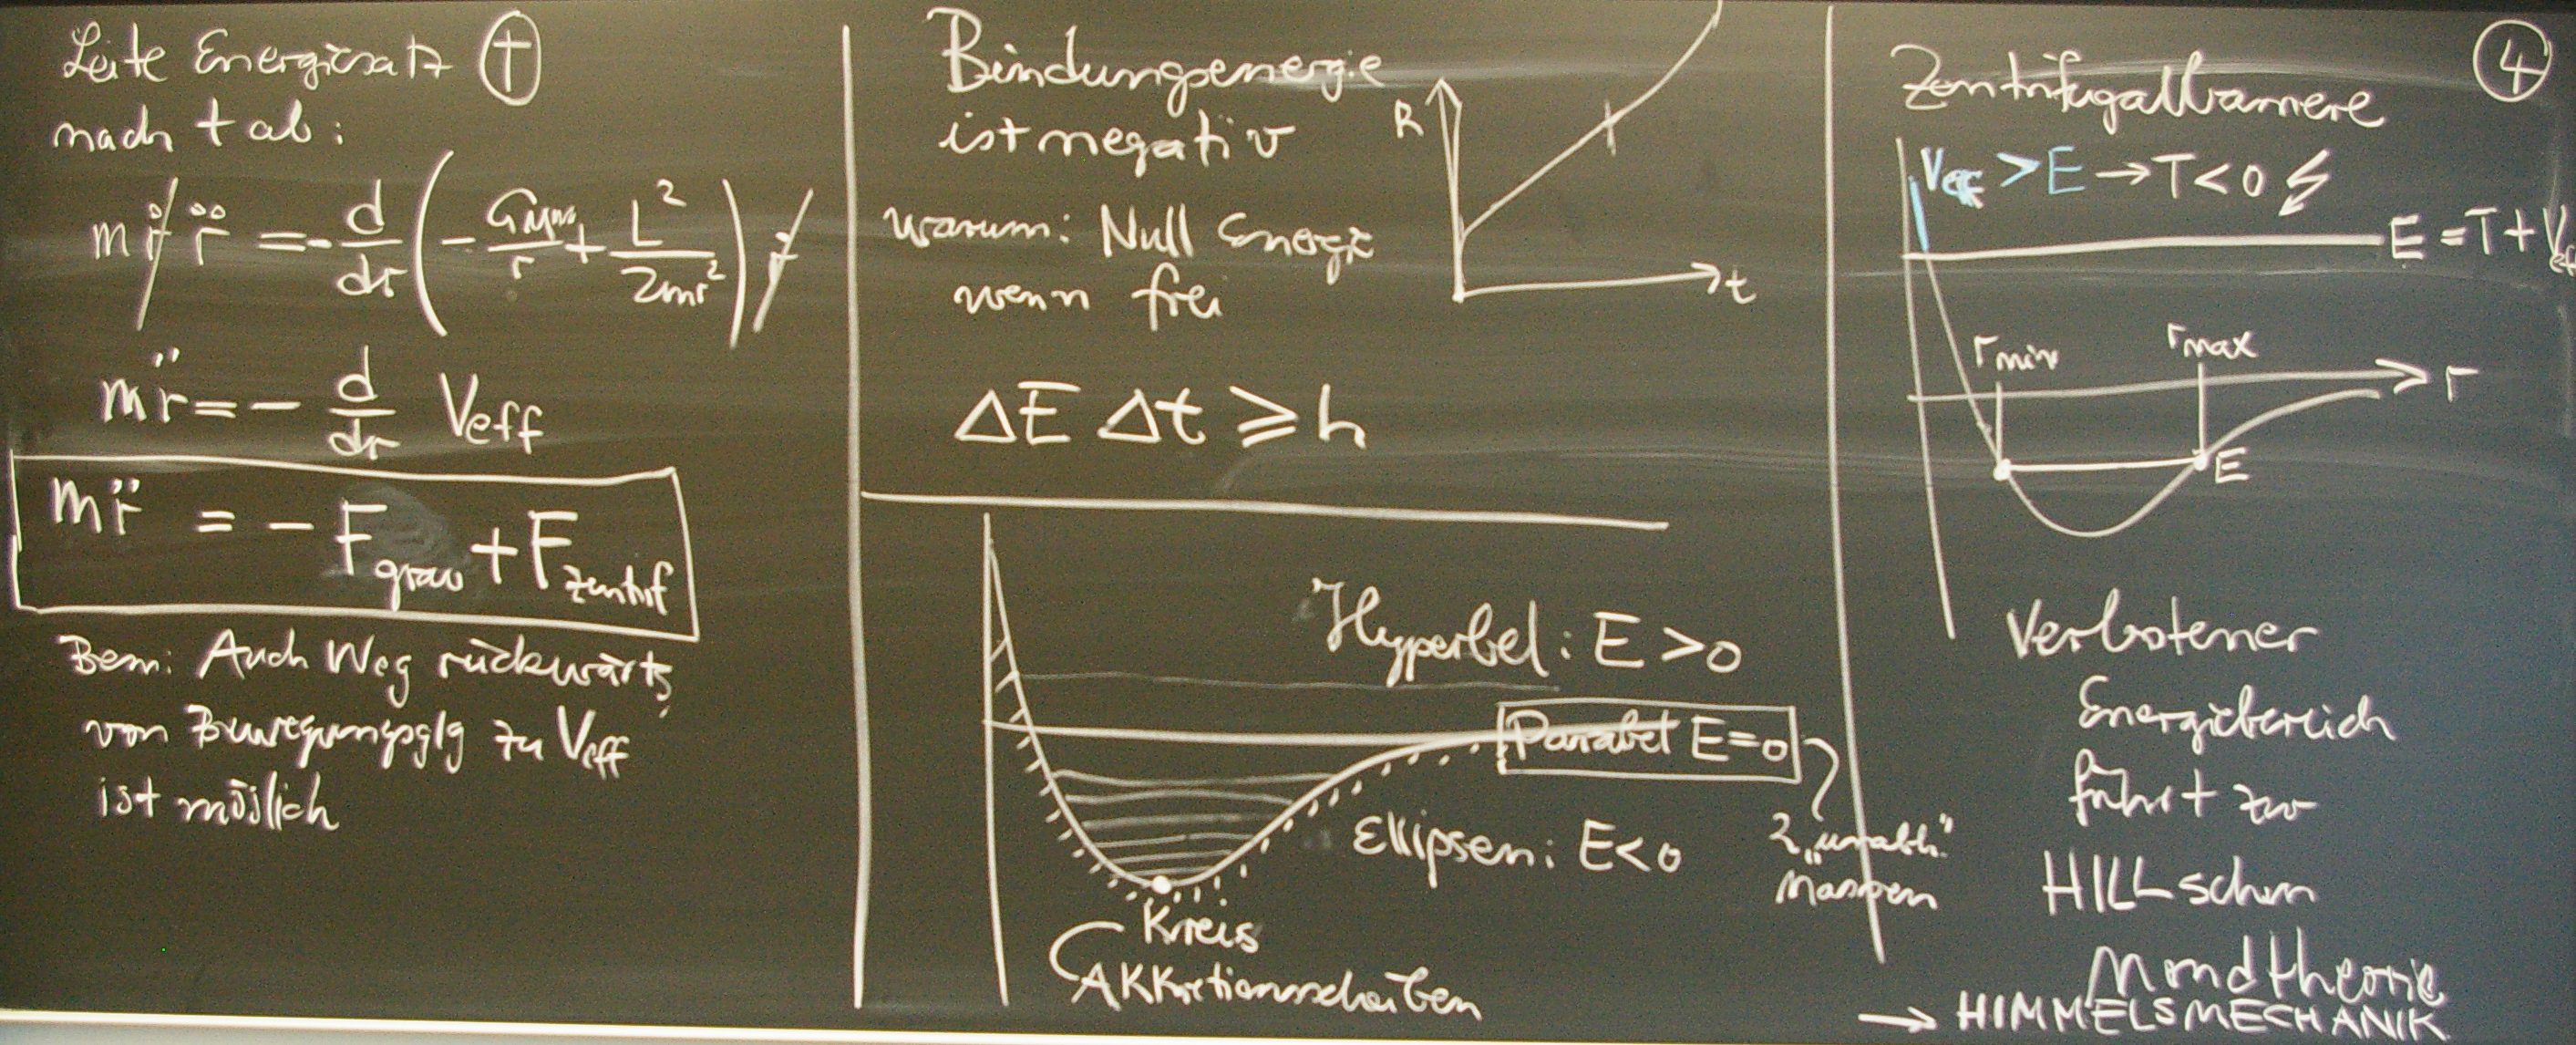 Leite Energiesatz †
nach t ab:
m ṙ r̈ = - d/dr ( - GMm/r + L²/2mr² ) ṙ
m r̈ = - d/dr Veff
m r̈ = - Fgrav + Fzentrif
Bem: Auch Weg rückwärts
von Bewegungsglg zu Veff
ist möglich
Bindungsenergie
ist negativ
warum: Null Energie
wenn frei
R
t
ΔE Δt ≥ h
Hyperbel: E > 0
Parabel E = 0
Ellipsen: E < 0
2 „unabh."
Massen
Kreis
Akkretionsscheiben
④
Zentrifugalbarriere
Veff > E → T < 0
E = T + Veff
rmin rmax
r
E
Verbotener
Energiebereich
führt zur
HILLschen
Mondtheorie
→ HIMMELSMECHANIK